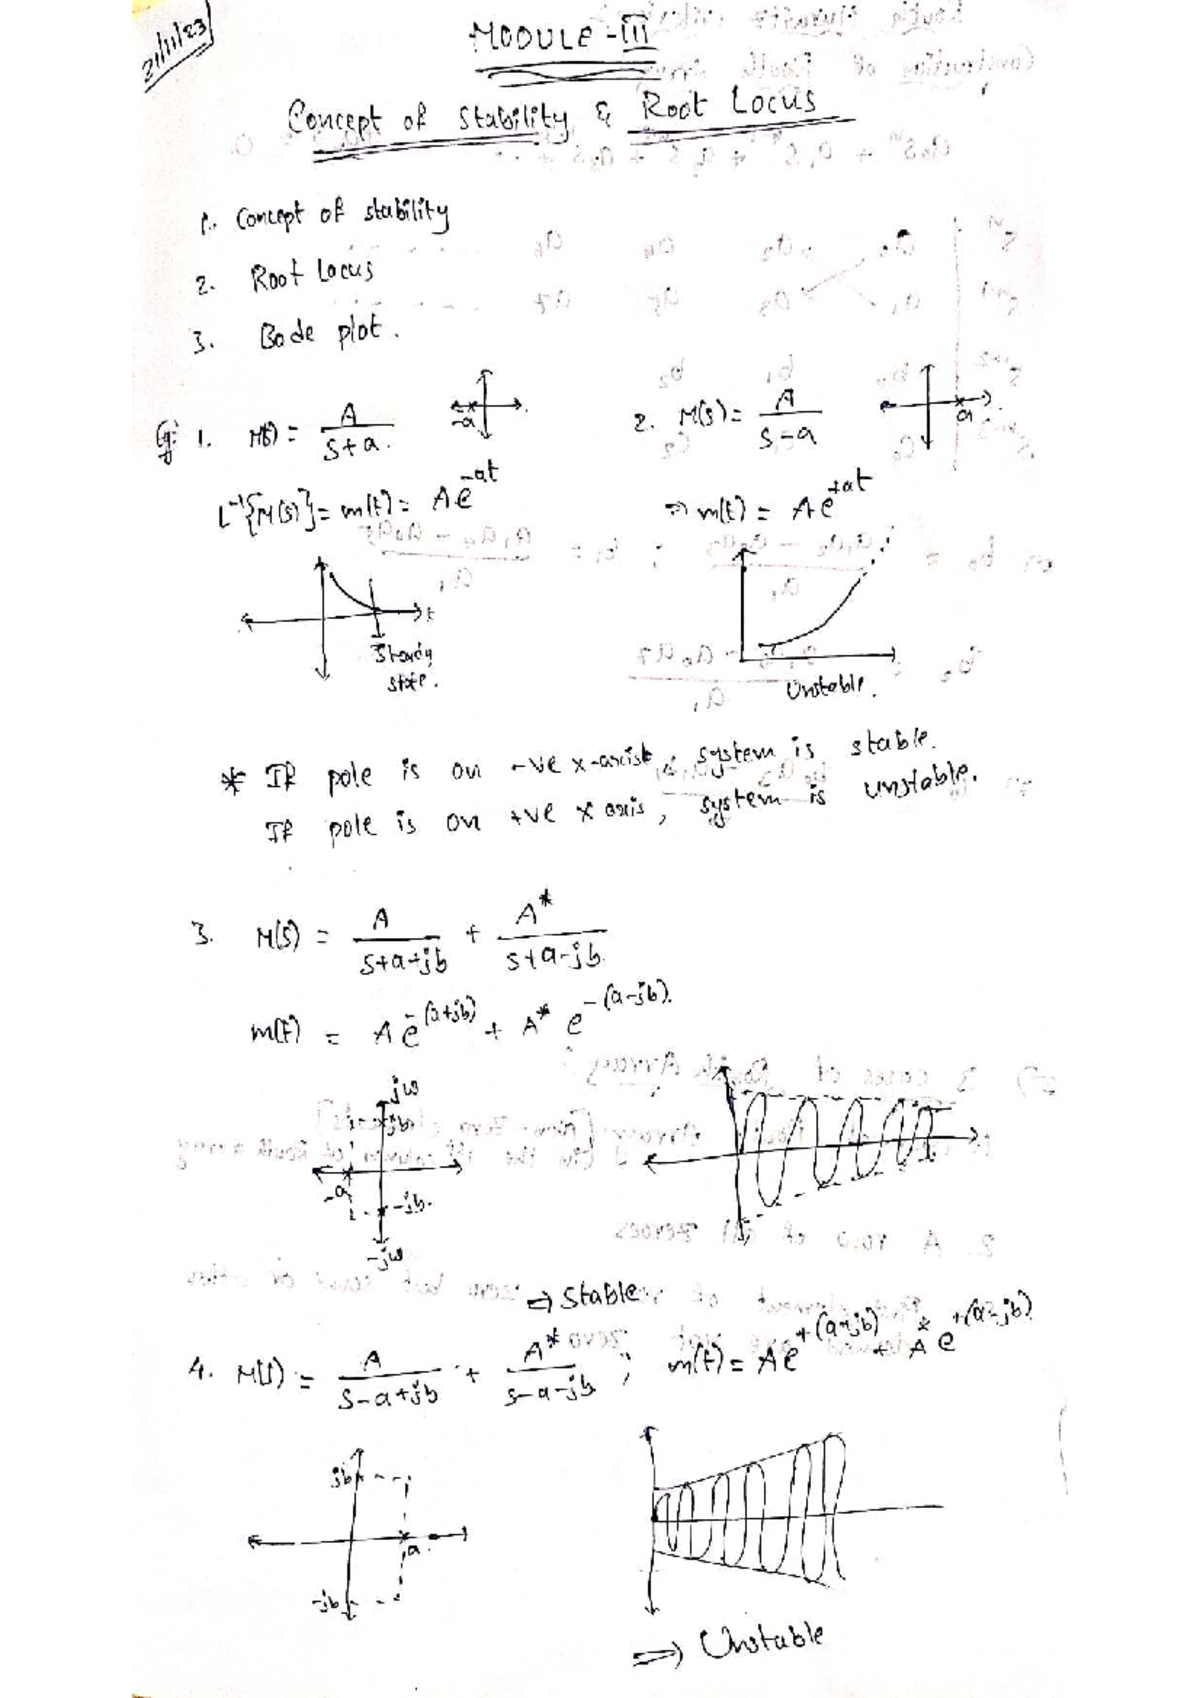 21/11/23
MODULE - III
Concept of stability & Root Locus
1. Concept of stability
2. Root Locus
3. Bode plot.
Eg: 1. M(s) = A / s+a.
-a
2. M(s) = A / s-a
a
L⁻¹{M(s)} = m(t) = A e^-at
⇒ m(t) = A e^+at
t
Steady
state.
Unstable.
* If pole is on -ve x-axis, system is stable.
If pole is on +ve x axis, system is unstable.
3. M(s) = A / s+a+jb + A* / s+a-jb.
m(t) = A e^-(a+jb) + A* e^-(a-jb).
jω
jb
-a
-jb.
-jω
⇒ Stable
4. M(s) = A / s-a+jb + A* / s-a-jb ; m(t) = A e^+(a+jb) + A* e^+(a-jb)
jb
a
-jb
⇒ Unstable